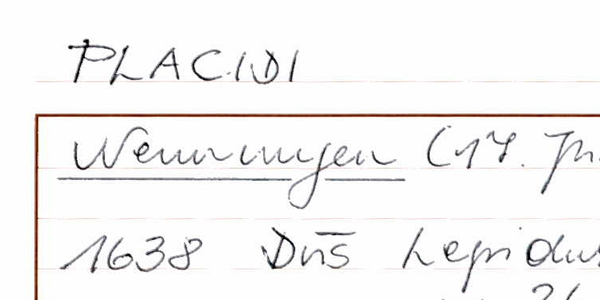 PLACIDI
Wemmingen (17. Jh.
1638 Dn̄s Lepidus